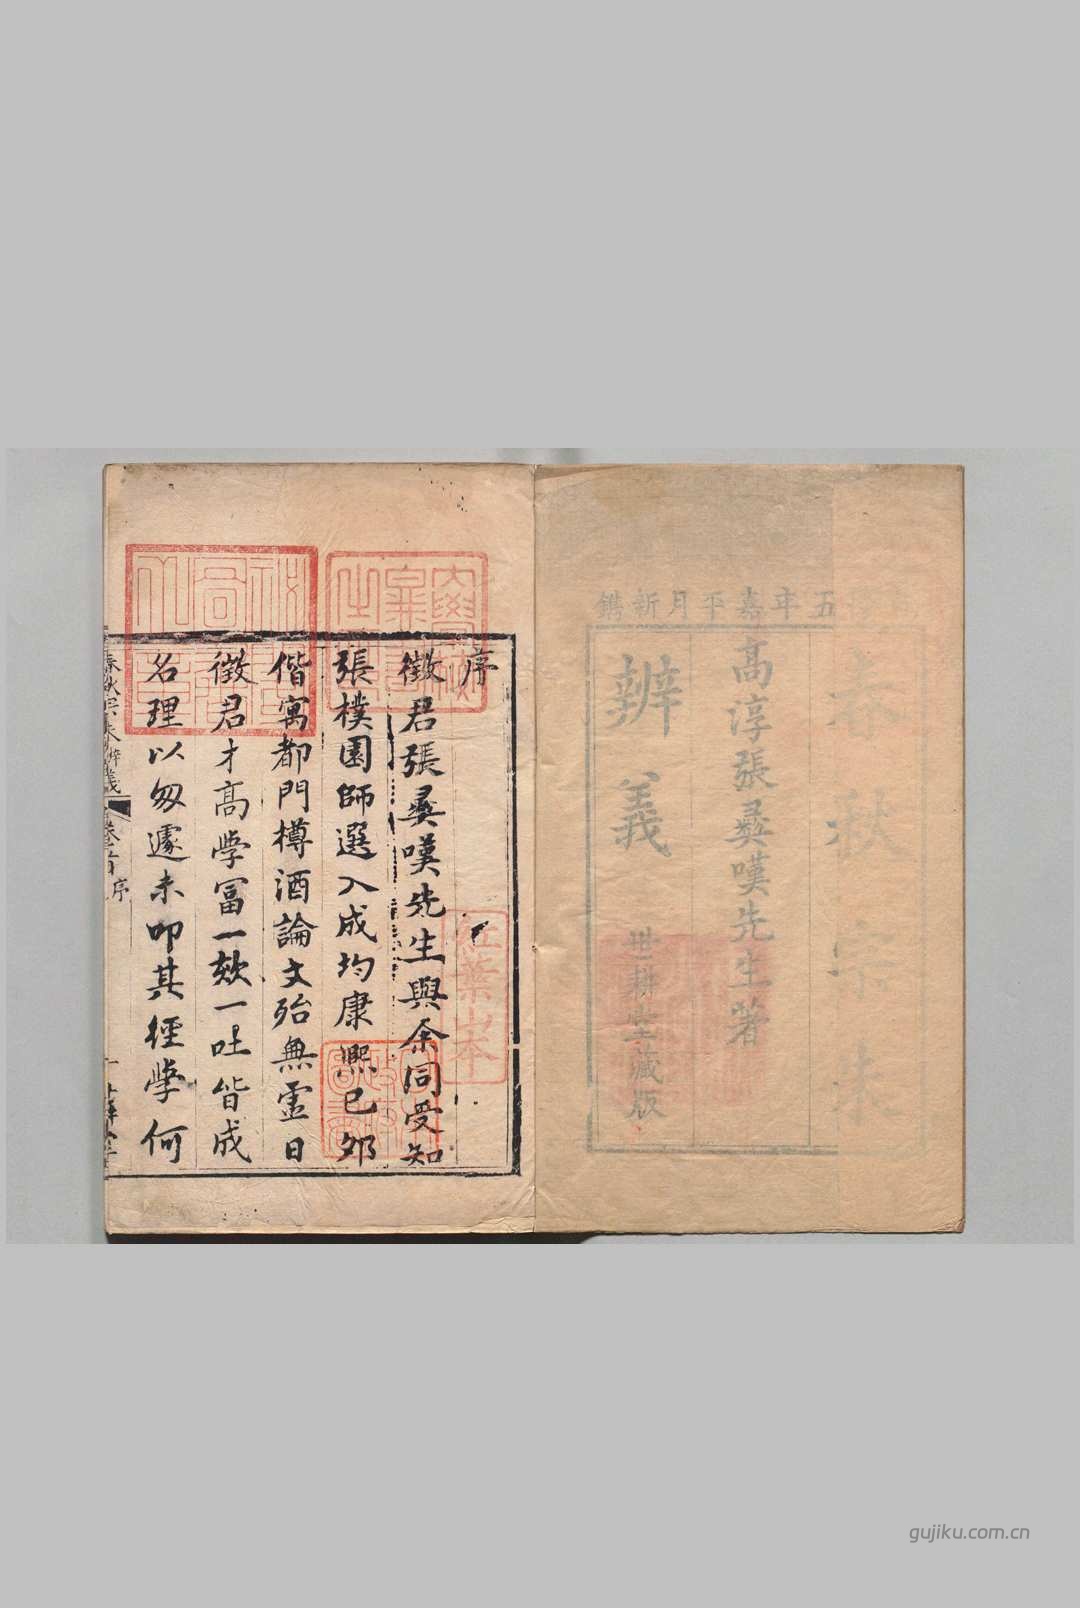 五年嘉平月新鐫
高淳張彞嘆先生著
春秋宗朱
辨義
世耕堂藏版
序
徵君張彞嘆先生與余同受知
張樸園師選入成均康熈已夘
偕寓都門樽酒論文殆無虛日
徵君才高學冨一欬一吐皆成
名理以匆遽未叩其經學何
春秋宗朱辨義
卷首
序
一
gujiku.com.cn